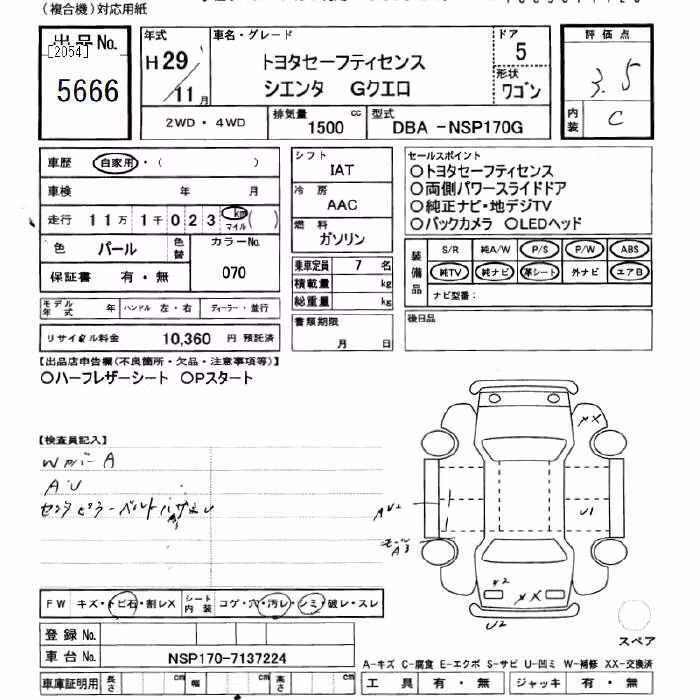 (複合機)対応用紙
出品No.
[2054]
5666
年式
H29/11月
車名・グレード
トヨタセーフティセンス
シエンタ Gクエロ
ドア
5
形状
ワゴン
評価点
3.5
内装
C
2WD・4WD
排気量
1500 cc
型式
DBA -NSP170G
車歴 自家用・( )
車検 年 月
走行 11万1千023 km マイル ( )
色 パール 色替
カラーNo.
070
保証書 有・無
モデル年式 年 ハンドル 左・右 ディーラー・並行
リサイクル料金 10,360 円 預託済
シフト
IAT
冷房
AAC
燃料
ガソリン
乗車定員 7 名
積載量 kg
総重量 kg
書類期限
月 日
セールスポイント
○トヨタセーフティセンス
○両側パワースライドドア
○純正ナビ・地デジTV
○バックカメラ ○LEDヘッド
装備品
S/R 純A/W P/S P/W ABS
純TV 純ナビ 革シート 外ナビ エアB
ナビ型番:
後日品
【出品店申告欄(不良箇所・欠品・注意事項等)】
○ハーフレザーシート ○Pスタート
【検査員記入】
Wバー A
A・U
センタピラーベルト
XX
AU2
U1
A3
U2
XX
U2
FW キズ・トビ石・割レX
シート内装 コゲ・穴・汚レ・シミ・破レ・スレ
登録No.
車台No. NSP170-7137224
車庫証明用 長さ cm 幅 cm 高さ cm
スペア
A-キズ C-腐食 E-エクボ S-サビ U-凹ミ W-補修 XX-交換済
工具 有・無 ジャッキ 有・無